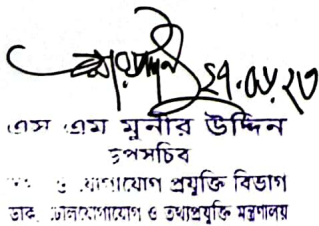 ২৭.০৮.২৩
এস এম মুনীর উদ্দিন
উপসচিব
ও যোগাযোগ প্রযুক্তি বিভাগ
ডাক, টেলিযোগাযোগ ও তথ্যপ্রযুক্তি মন্ত্রণালয়